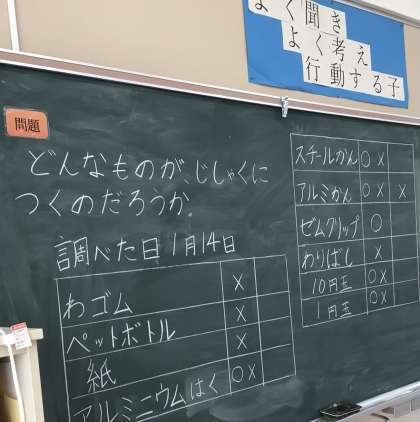 よく聞き
よく考え
行動する子
問題
どんなものが、じしゃくに
つくのだろうか。
調べた日 1月14日
わゴム ×
ペットボトル ×
紙 ×
アルミニウムはく ○×
スチールかん ○×
アルミかん ○× ×
ゼムクリップ ○
わりばし ×
10円玉 ○×
1円玉 ○×